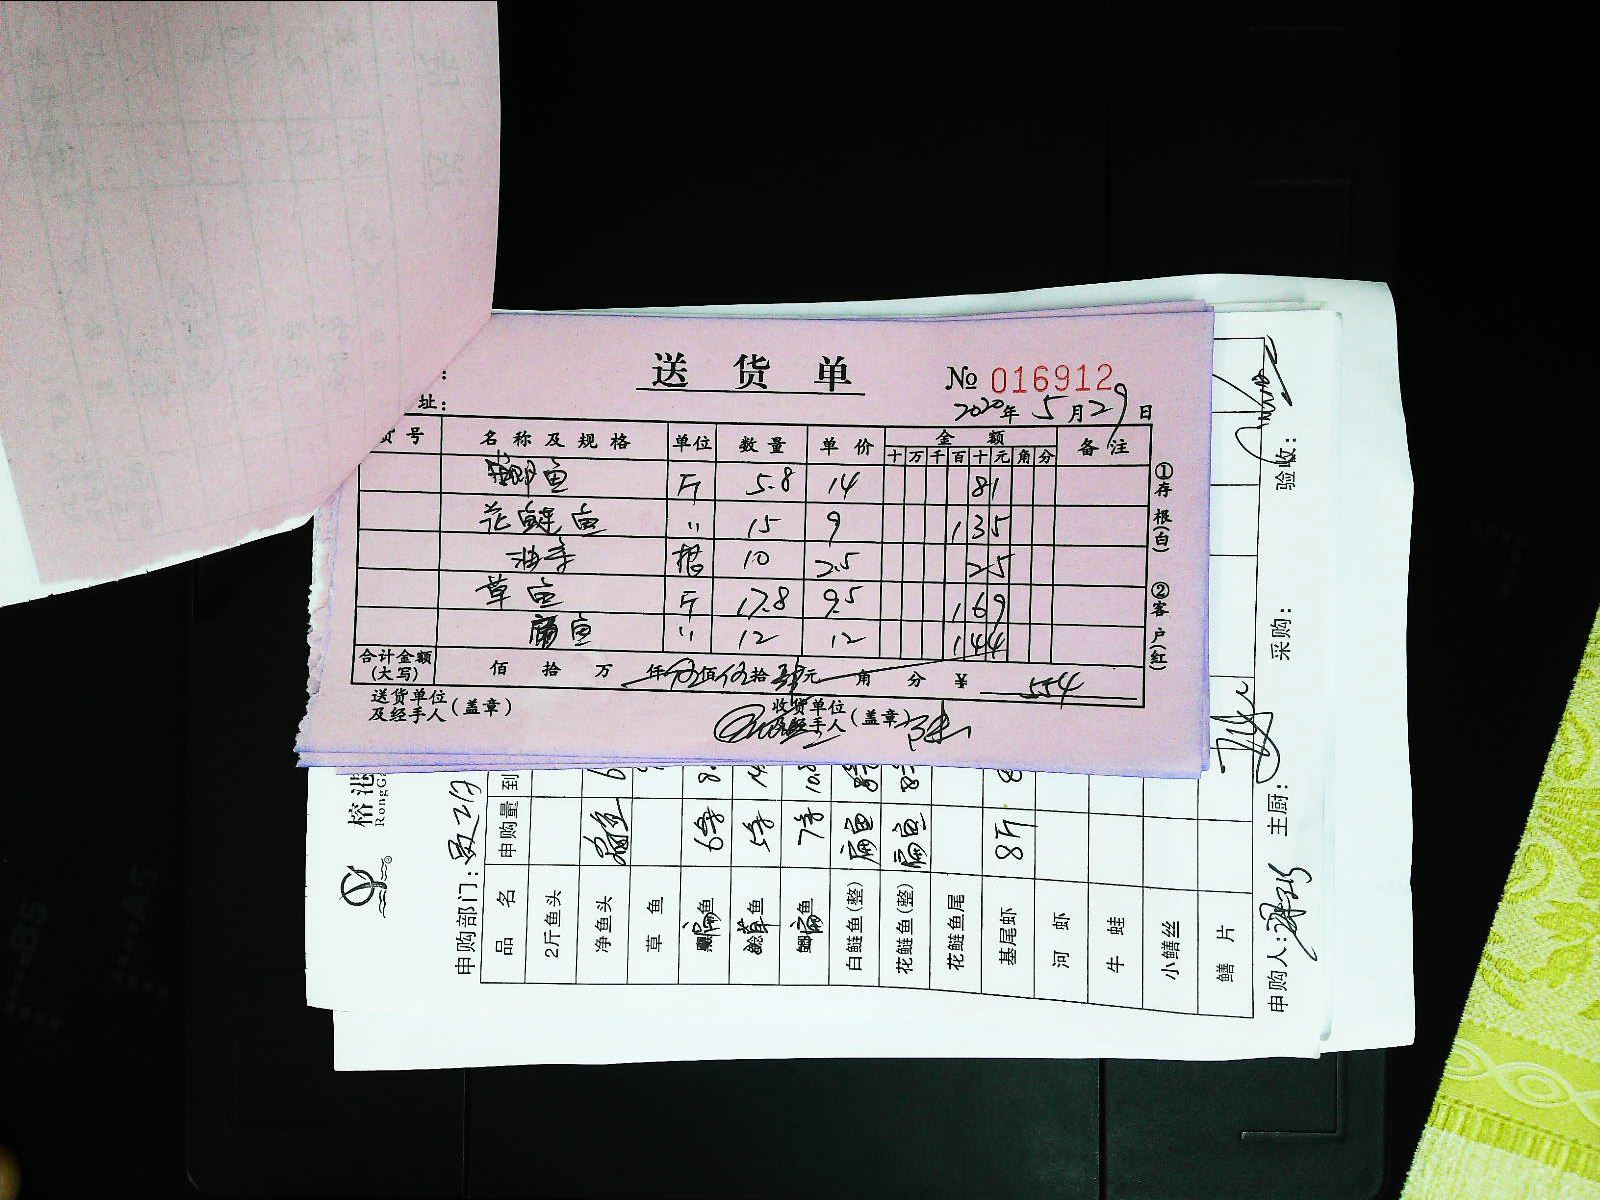 送货单 № 016912
址: 2020年5月29日
货号 名称及规格 单位 数量 单价 金额 备注
十 万 千 百 十 元 角 分
鲫鱼 斤 5.8 14 81
花鲢鱼 〃 15 9 135
油条 根 10 2.5 25
草鱼 斤 17.8 9.5 169
扁鱼 〃 12 12 144
合计金额(大写) 佰 拾 万 仟 伍佰伍拾肆元 角 分 ¥ 554
送货单位及经手人(盖章) 收货单位及经手人(盖章)
①存根(白) ②客户(红)
榕港
RongG
申购部门:
品名 申购量 到
2斤鱼头
净鱼头
草鱼
鱼 6条
鱼 5条
鱼 7条
白鲢鱼(整) 扁鱼
花鲢鱼(整) 扁鱼
花鲢鱼尾
基尾虾 8斤
河虾
牛蛙
小鳝丝
鳝片
申购人: 主厨: 采购: 验收: